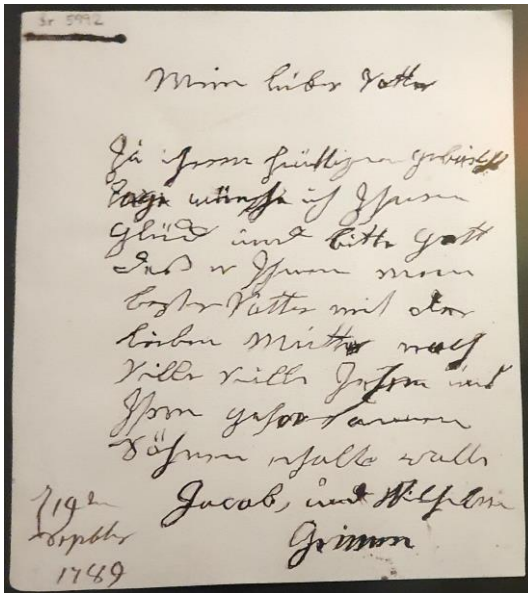 Gr 5992
Mein lieber Vatter
Zu ihrem heittigen geburths
Tage wünsche ich Ihnen
Glück und bitte Gott
daß er Ihnen mein
bester Vatter mit der
lieben Mutter noch
Ville ville Jahre und
Ihren gehorsammen
Söhnen erhalte wolle
Jacob, und Wilhelm
Grimm
19ten
Septbr
1789